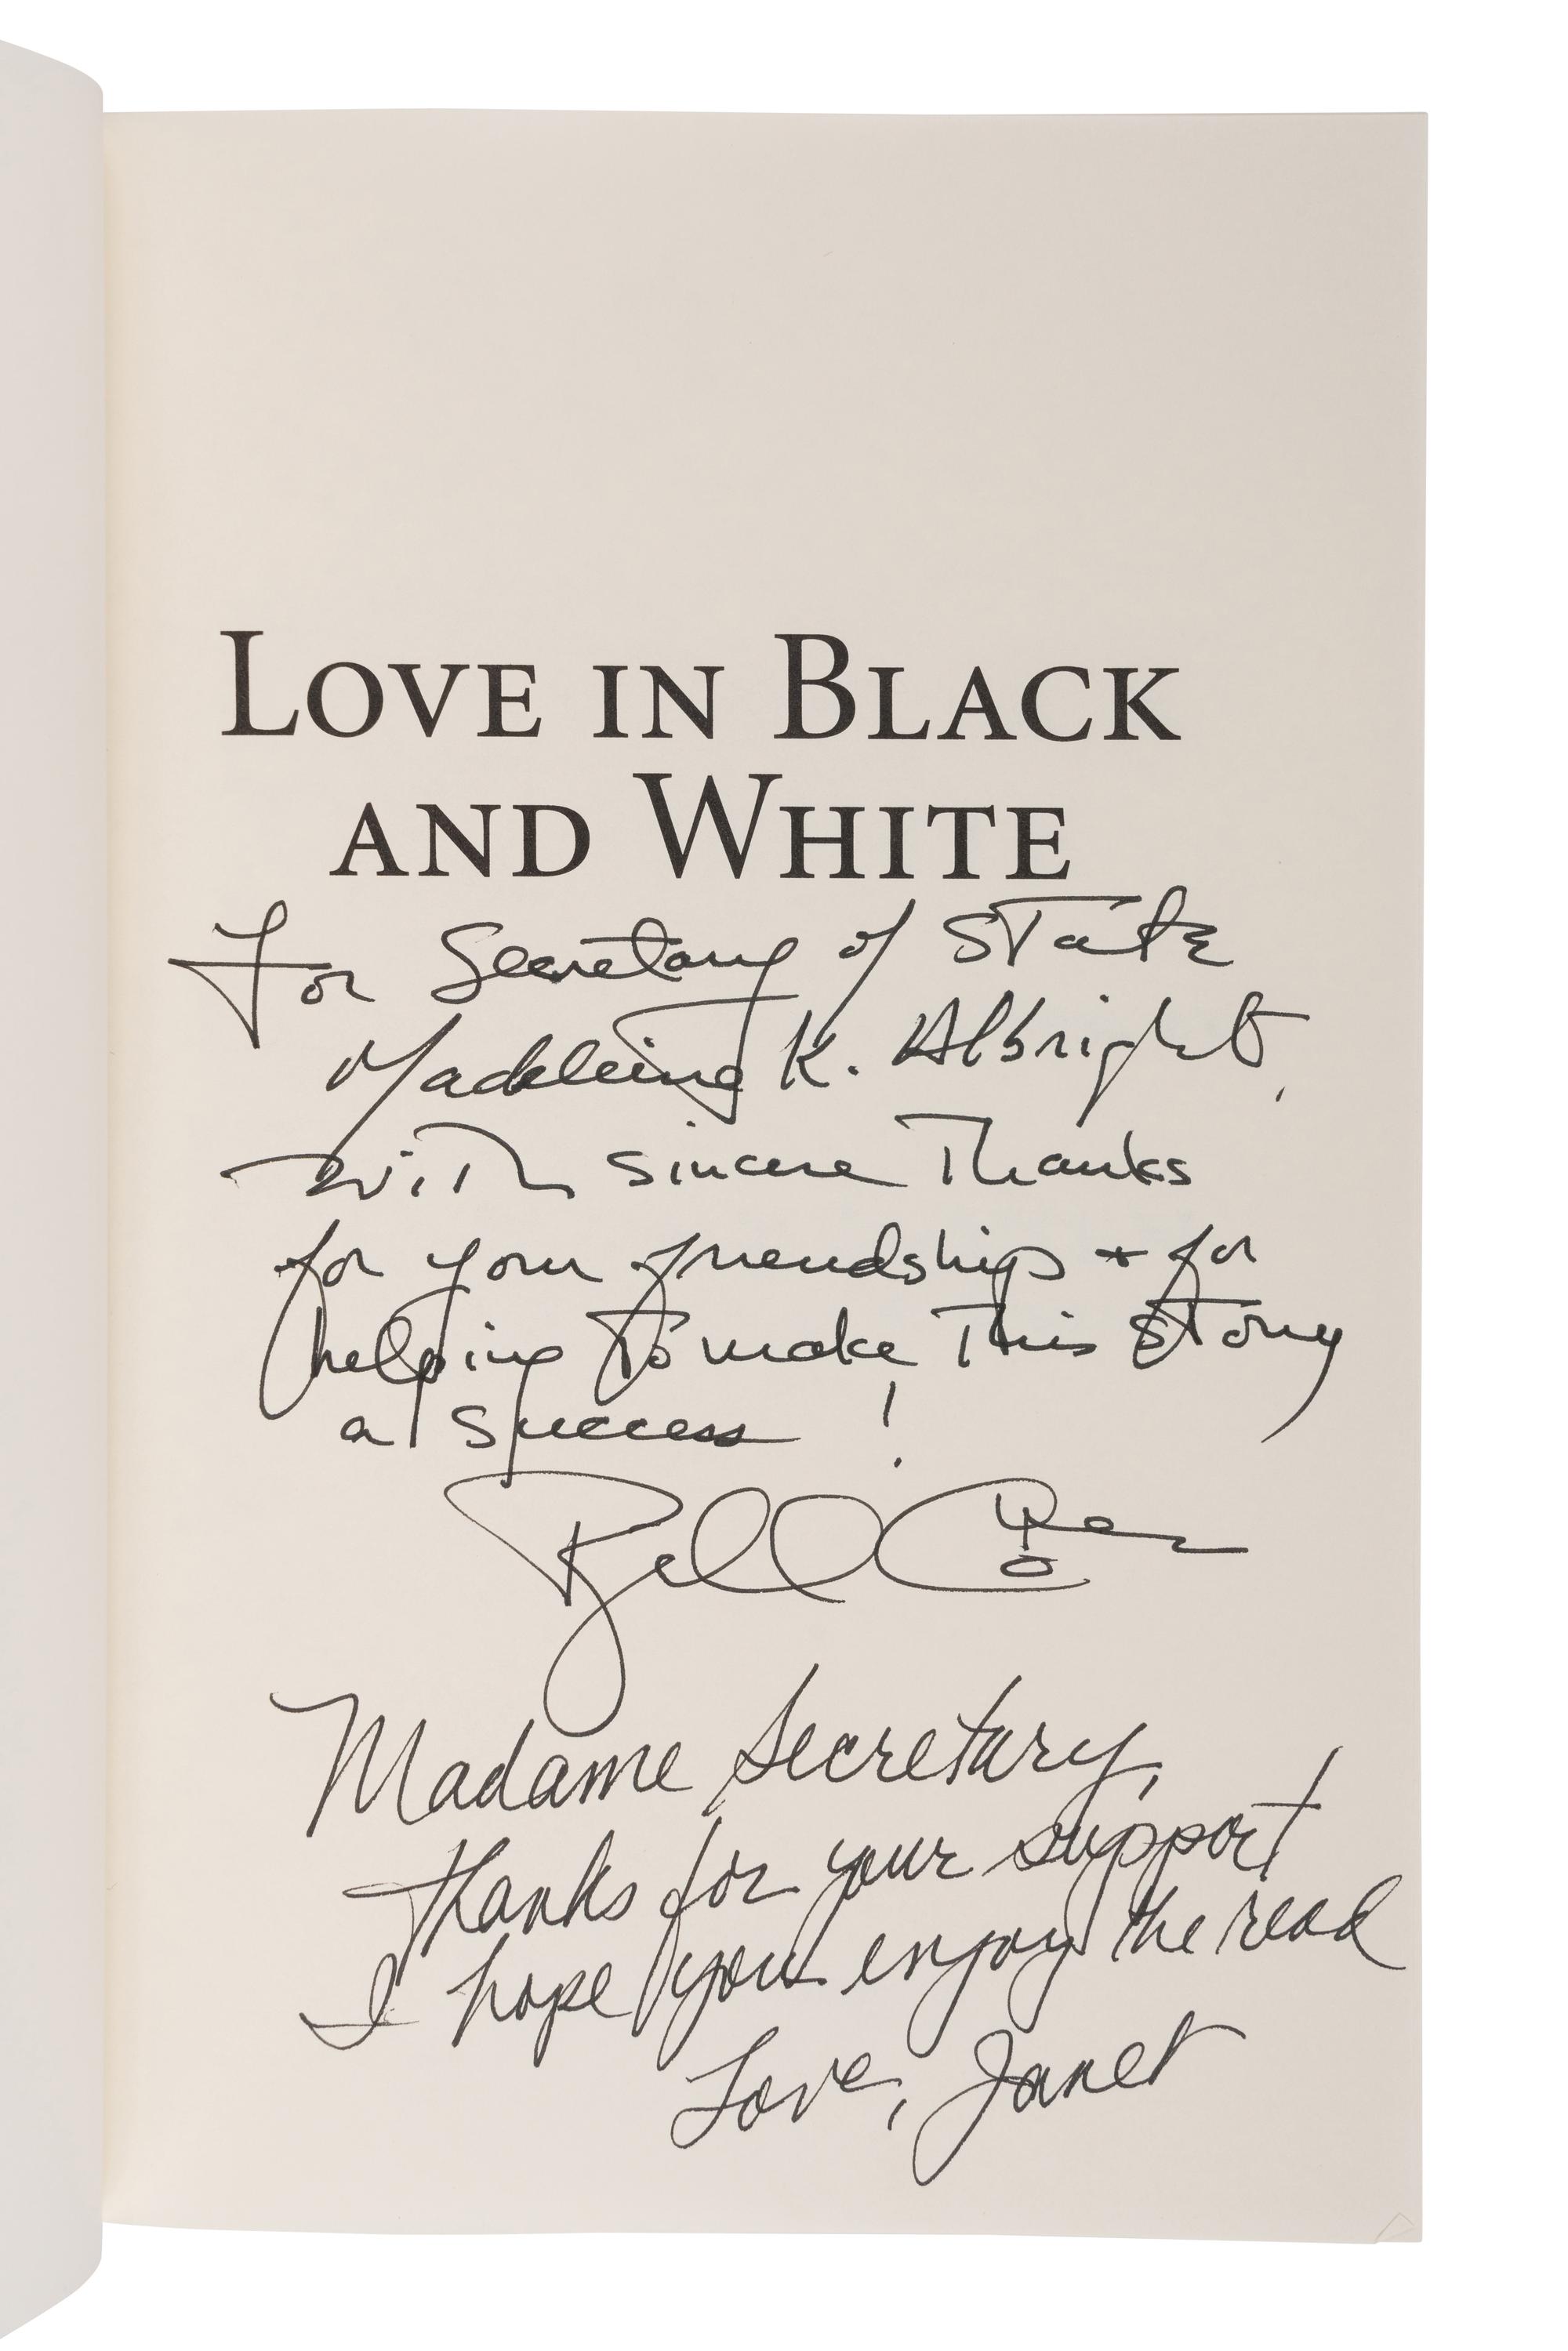 LOVE IN BLACK
AND WHITE
For Secretary of State
Madeleine K. Albright,
with sincere Thanks
for your friendship + for
helping to make This story
a success!
Bill Cohen
Madame Secretary,
thanks for your support
I hope you enjoy the read
Love, Janet